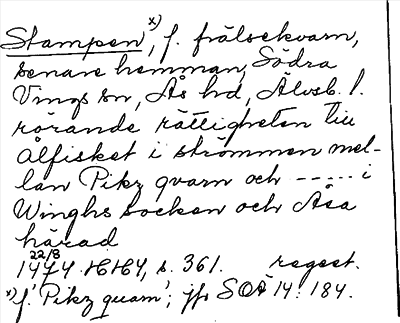 Stampen x), f. frälsekvarn,
senare hemman, Södra
Vings sn, Ås hd, Älvsb. l.
rörande rättigheten till
ålfisket i strömmen mel-
lan Pikz qvarn och ----- i
Winghs socken och Åsa
härad
22/8
1474 HH4, s. 361. regest.
x) f. 'Pikz quarn'; jfr SOÄ 14: 184.